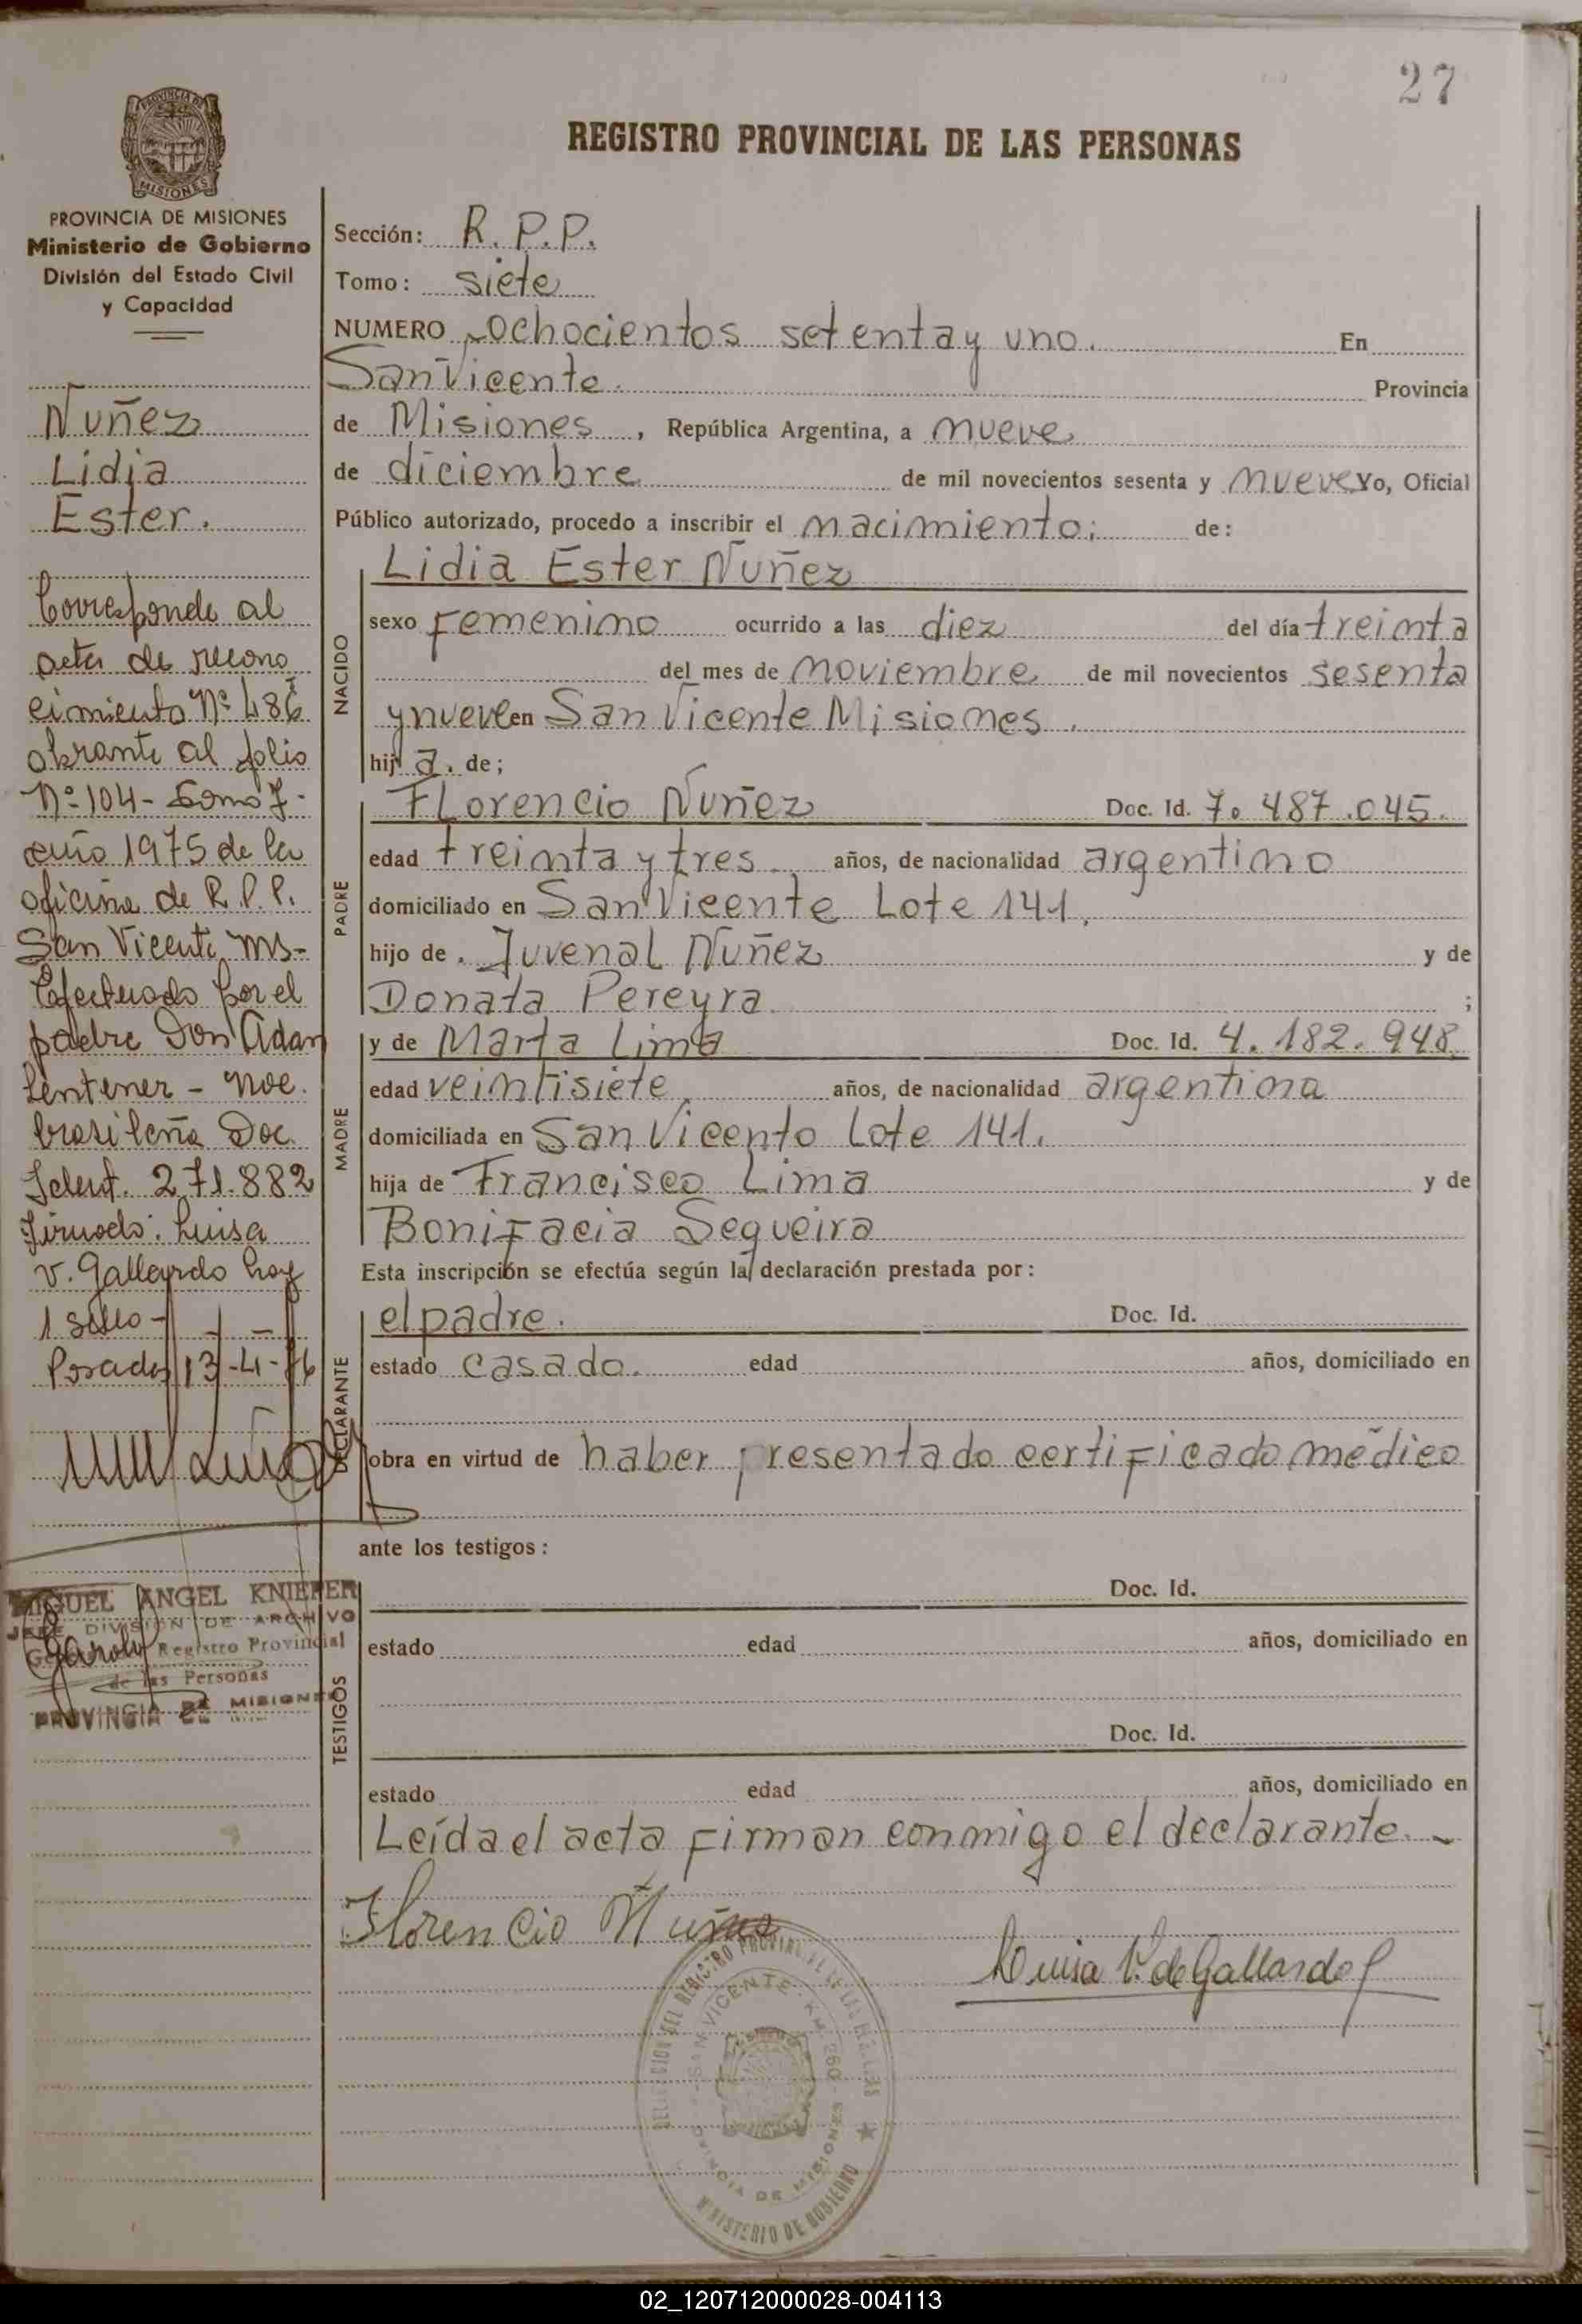 27
REGISTRO PROVINCIAL DE LAS PERSONAS
PROVINCIA DE MISIONES
Ministerio de Gobierno
División del Estado Civil
y Capacidad
Nuñez
Lidia
Ester.
Corresponde al
acta de recono
cimiento Nº 486
obrante al folio
Nº 104 - Tomo 7-
año 1975 de la
oficina de R.P.P.
San Vicente Ms-
Efectuado por el
padre Don Adan
Lentener - Noc.
brasileña Doc.
Ident. 271.882
Firmado: Luisa
V. Gallardo hay
1 sello -
Posadas 13-4-76
MIGUEL ANGEL KNIEPER
JEFE DIVISION DE ARCHIVO
Registro Provincial
de las Personas
PROVINCIA DE MISIONES
Sección: R.P.P.
Tomo: siete
NUMERO ochocientos setenta y uno. En
San Vicente. Provincia
de Misiones, República Argentina, a nueve
de diciembre de mil novecientos sesenta y nueve Yo, Oficial
Público autorizado, procedo a inscribir el nacimiento; de:
NACIDO
Lidia Ester Nuñez
sexo Femenino ocurrido a las diez del día treinta
del mes de noviembre de mil novecientos sesenta
y nueve en San Vicente Misiones.
hij a. de;
PADRE
Florencio Nuñez Doc. Id. 7.487.045.
edad treinta y tres años, de nacionalidad argentino
domiciliado en San Vicente Lote 141.
hijo de. Juvenal Nuñez y de
Donata Pereyra ;
MADRE
y de Marta Lima Doc. Id. 4.182.948.
edad veintisiete años, de nacionalidad argentina
domiciliada en San Vicente Lote 141.
hija de Francisco Lima y de
Bonifacia Sequeira
Esta inscripción se efectúa según la declaración prestada por:
DECLARANTE
el padre. Doc. Id.
estado casado. edad años, domiciliado en
obra en virtud de haber presentado certificado médico
ante los testigos:
TESTIGOS
Doc. Id.
estado edad años, domiciliado en
Doc. Id.
estado edad años, domiciliado en
Leída el acta firman conmigo el declarante.-
Florencio Nuñes
Luisa V. de Gallardo
DELEGACION DEL REGISTRO PROVINCIAL DE LAS PERSONAS
SAN VICENTE - KM. 260 -
PROVINCIA DE MISIONES
MINISTERIO DE GOBIERNO
02_120712000028-004113